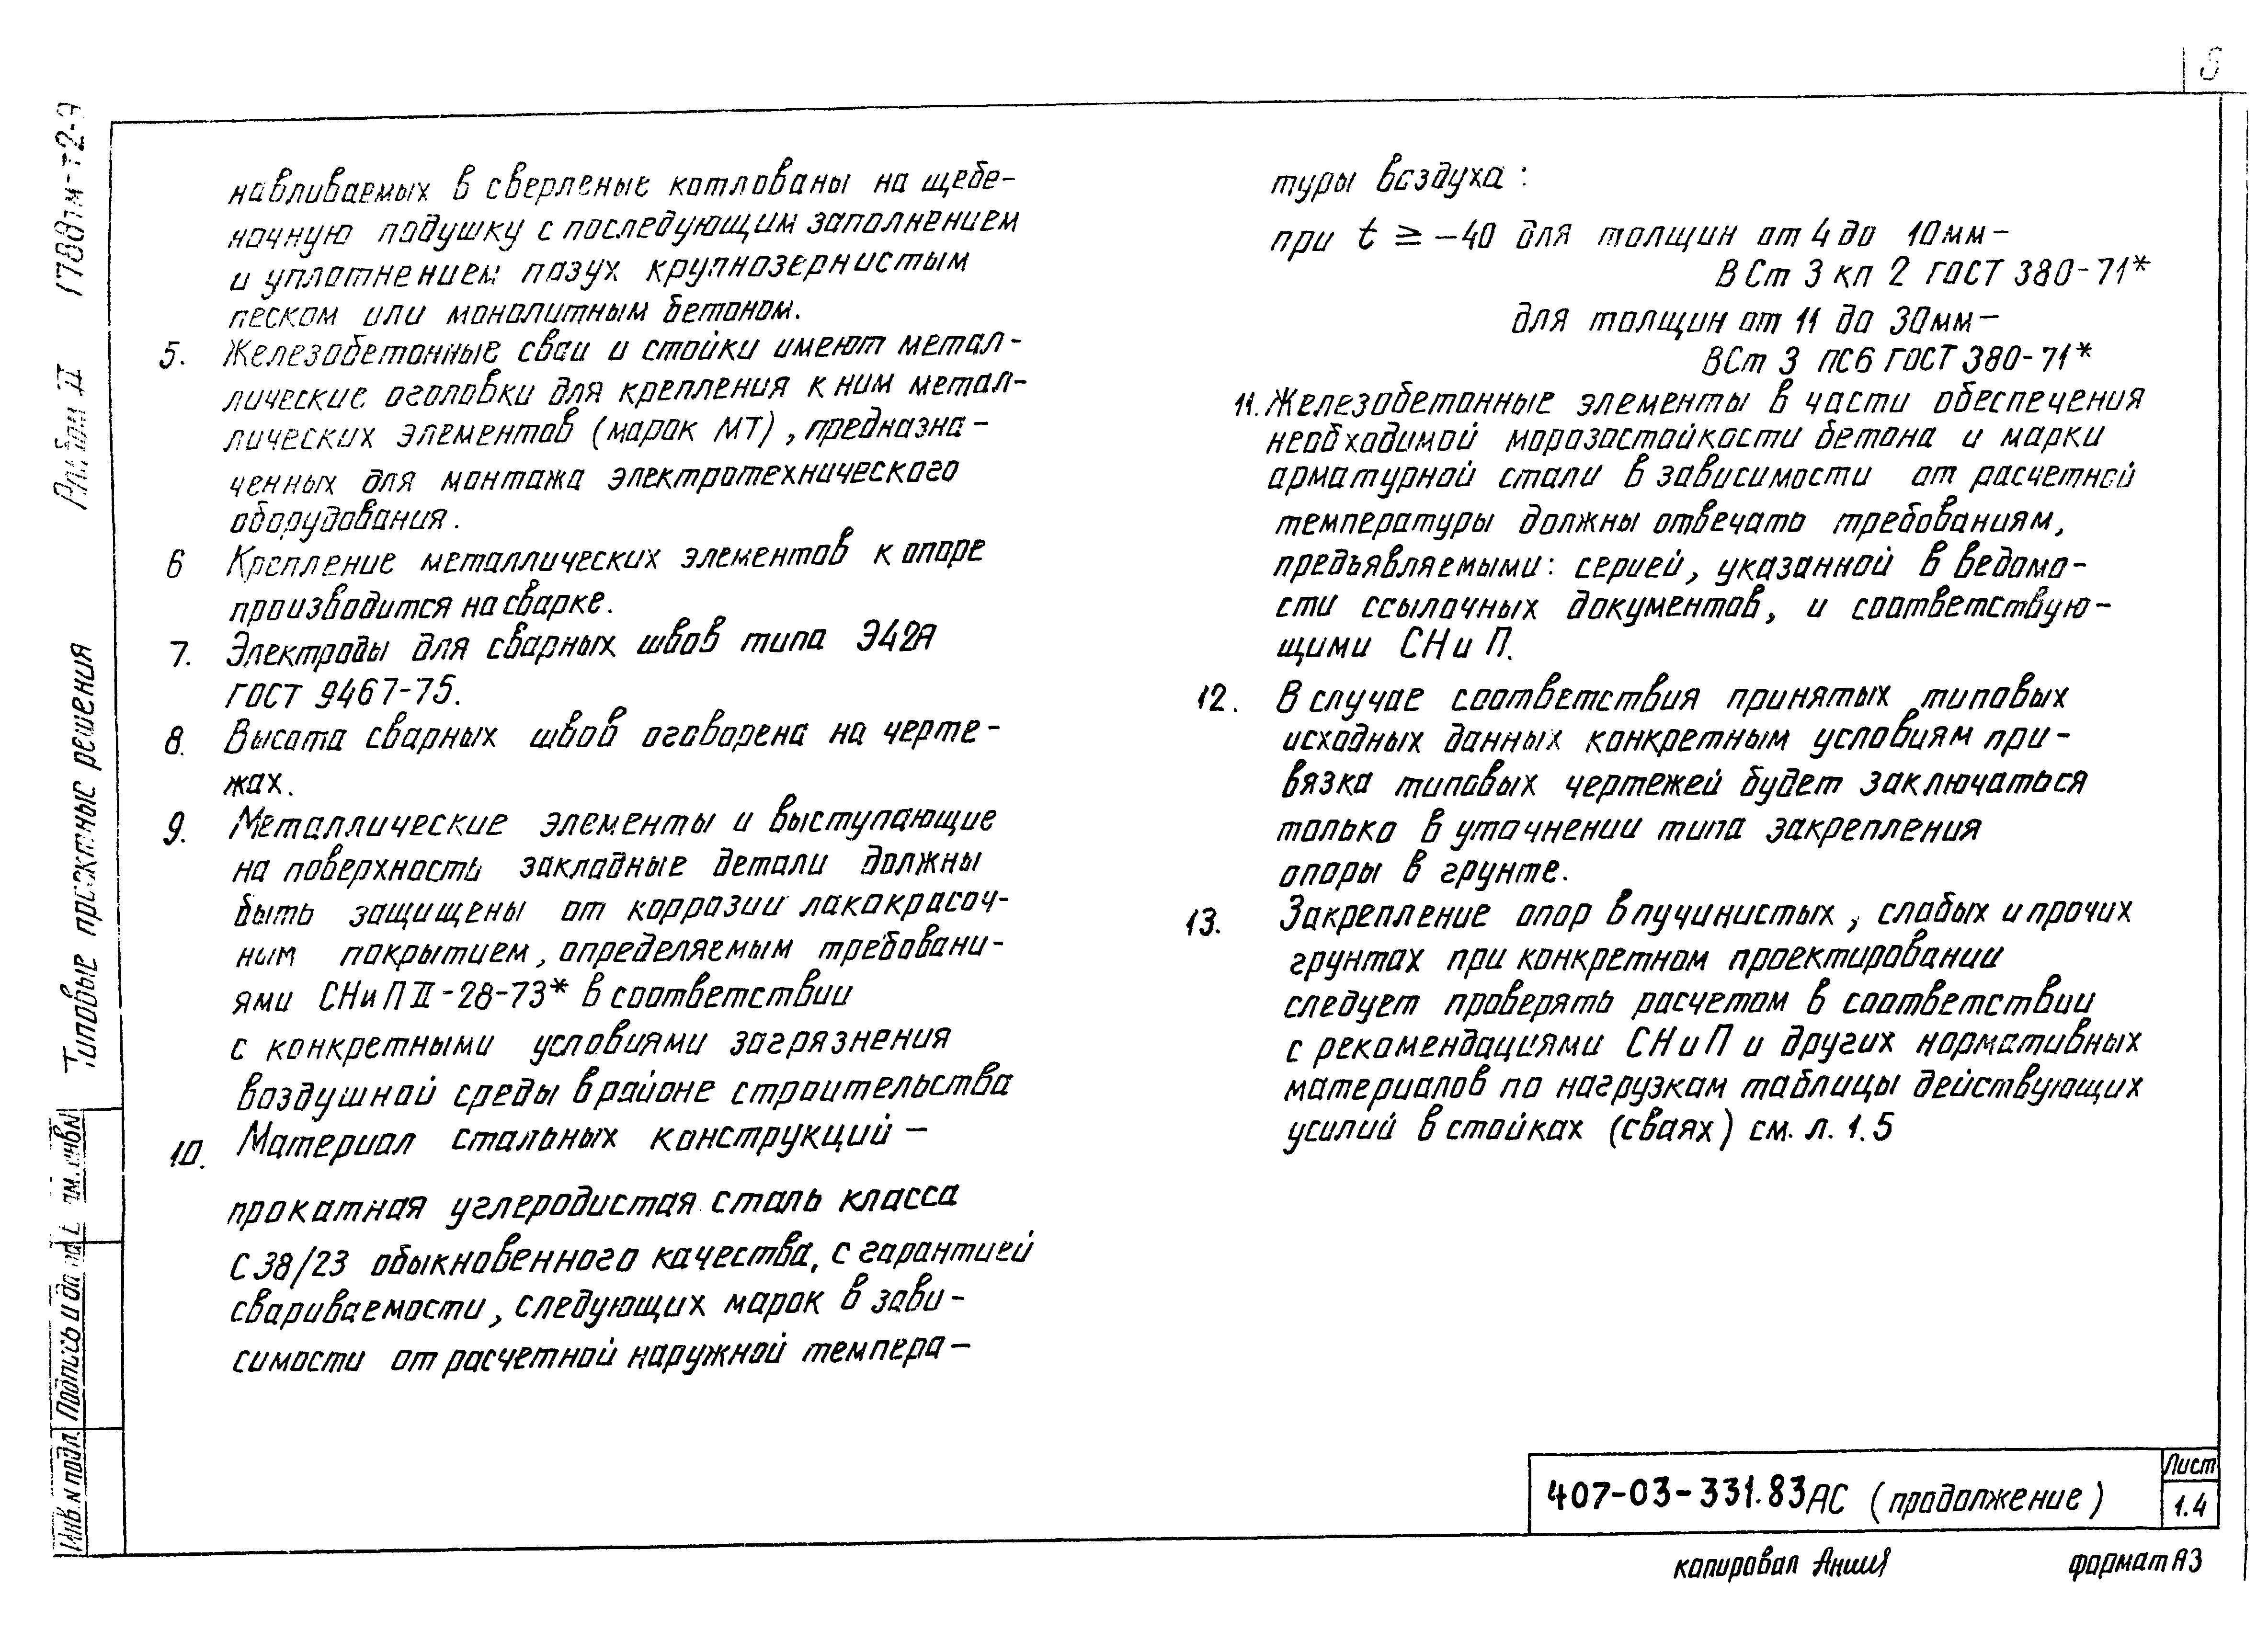 навливаемых в сверленые котлованы на щебе-
ночную подушку с последующим заполнением
и уплотнением пазух крупнозернистым
песком или монолитным бетоном.
5. Железобетонные сваи и стойки имеют метал-
лические оголовки для крепления к ним метал-
лических элементов (марок МТ), предназна-
ченных для монтажа электротехнического
оборудования.
6 Крепление металлических элементов к опоре
производится на сварке.
7. Электроды для сварных швов типа Э42А
ГОСТ 9467-75.
8. Высота сварных швов оговорена на черте-
жах.
9. Металлические элементы и выступающие
на поверхность закладные детали должны
быть защищены от коррозии лакокрасоч-
ным покрытием, определяемым требовани-
ями СНиП II-28-73* в соответствии
с конкретными условиями загрязнения
воздушной среды в районе строительства
10. Материал стальных конструкций —
прокатная углеродистая сталь класса
С 38/23 обыкновенного качества, с гарантией
свариваемости, следующих марок в зави-
симости от расчетной наружной темпера-
туры воздуха:
при t ≥ -40 для толщин от 4 до 10мм-
ВСт 3 кп 2 ГОСТ 380-71*
для толщин от 11 до 30мм-
ВСт 3 пс6 ГОСТ 380-71*
11. Железобетонные элементы в части обеспечения
необходимой морозостойкости бетона и марки
арматурной стали в зависимости от расчетной
температуры должны отвечать требованиям,
предъявляемыми: серией, указанной в ведомо-
сти ссылочных документов, и соответствую-
щими СНиП.
12. В случае соответствия принятых типовых
исходных данных конкретным условиям при-
вязка типовых чертежей будет заключаться
только в уточнении типа закрепления
опоры в грунте.
13. Закрепление опор в пучинистых, слабых и прочих
грунтах при конкретном проектировании
следует проверять расчетом в соответствии
с рекомендациями СНиП и других нормативных
материалов по нагрузкам таблицы действующих
усилий в стойках (сваях) см. л. 1.5
407-03-331.83 АС (продолжение)
Лист
1.4
копировал
формат А3
Типовые проектные решения
Альбом II
Инв. N подл.
Подпись и дата